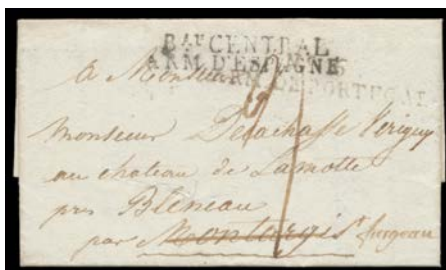 BAU CENTRAL
ARM. D'ESPAGNE
ARM. DE PORTUGAL
à Monsieur
Monsieur Delachasse Verigny
au chateau de Lamotte
près Bleneau
par Montargis St fargeau